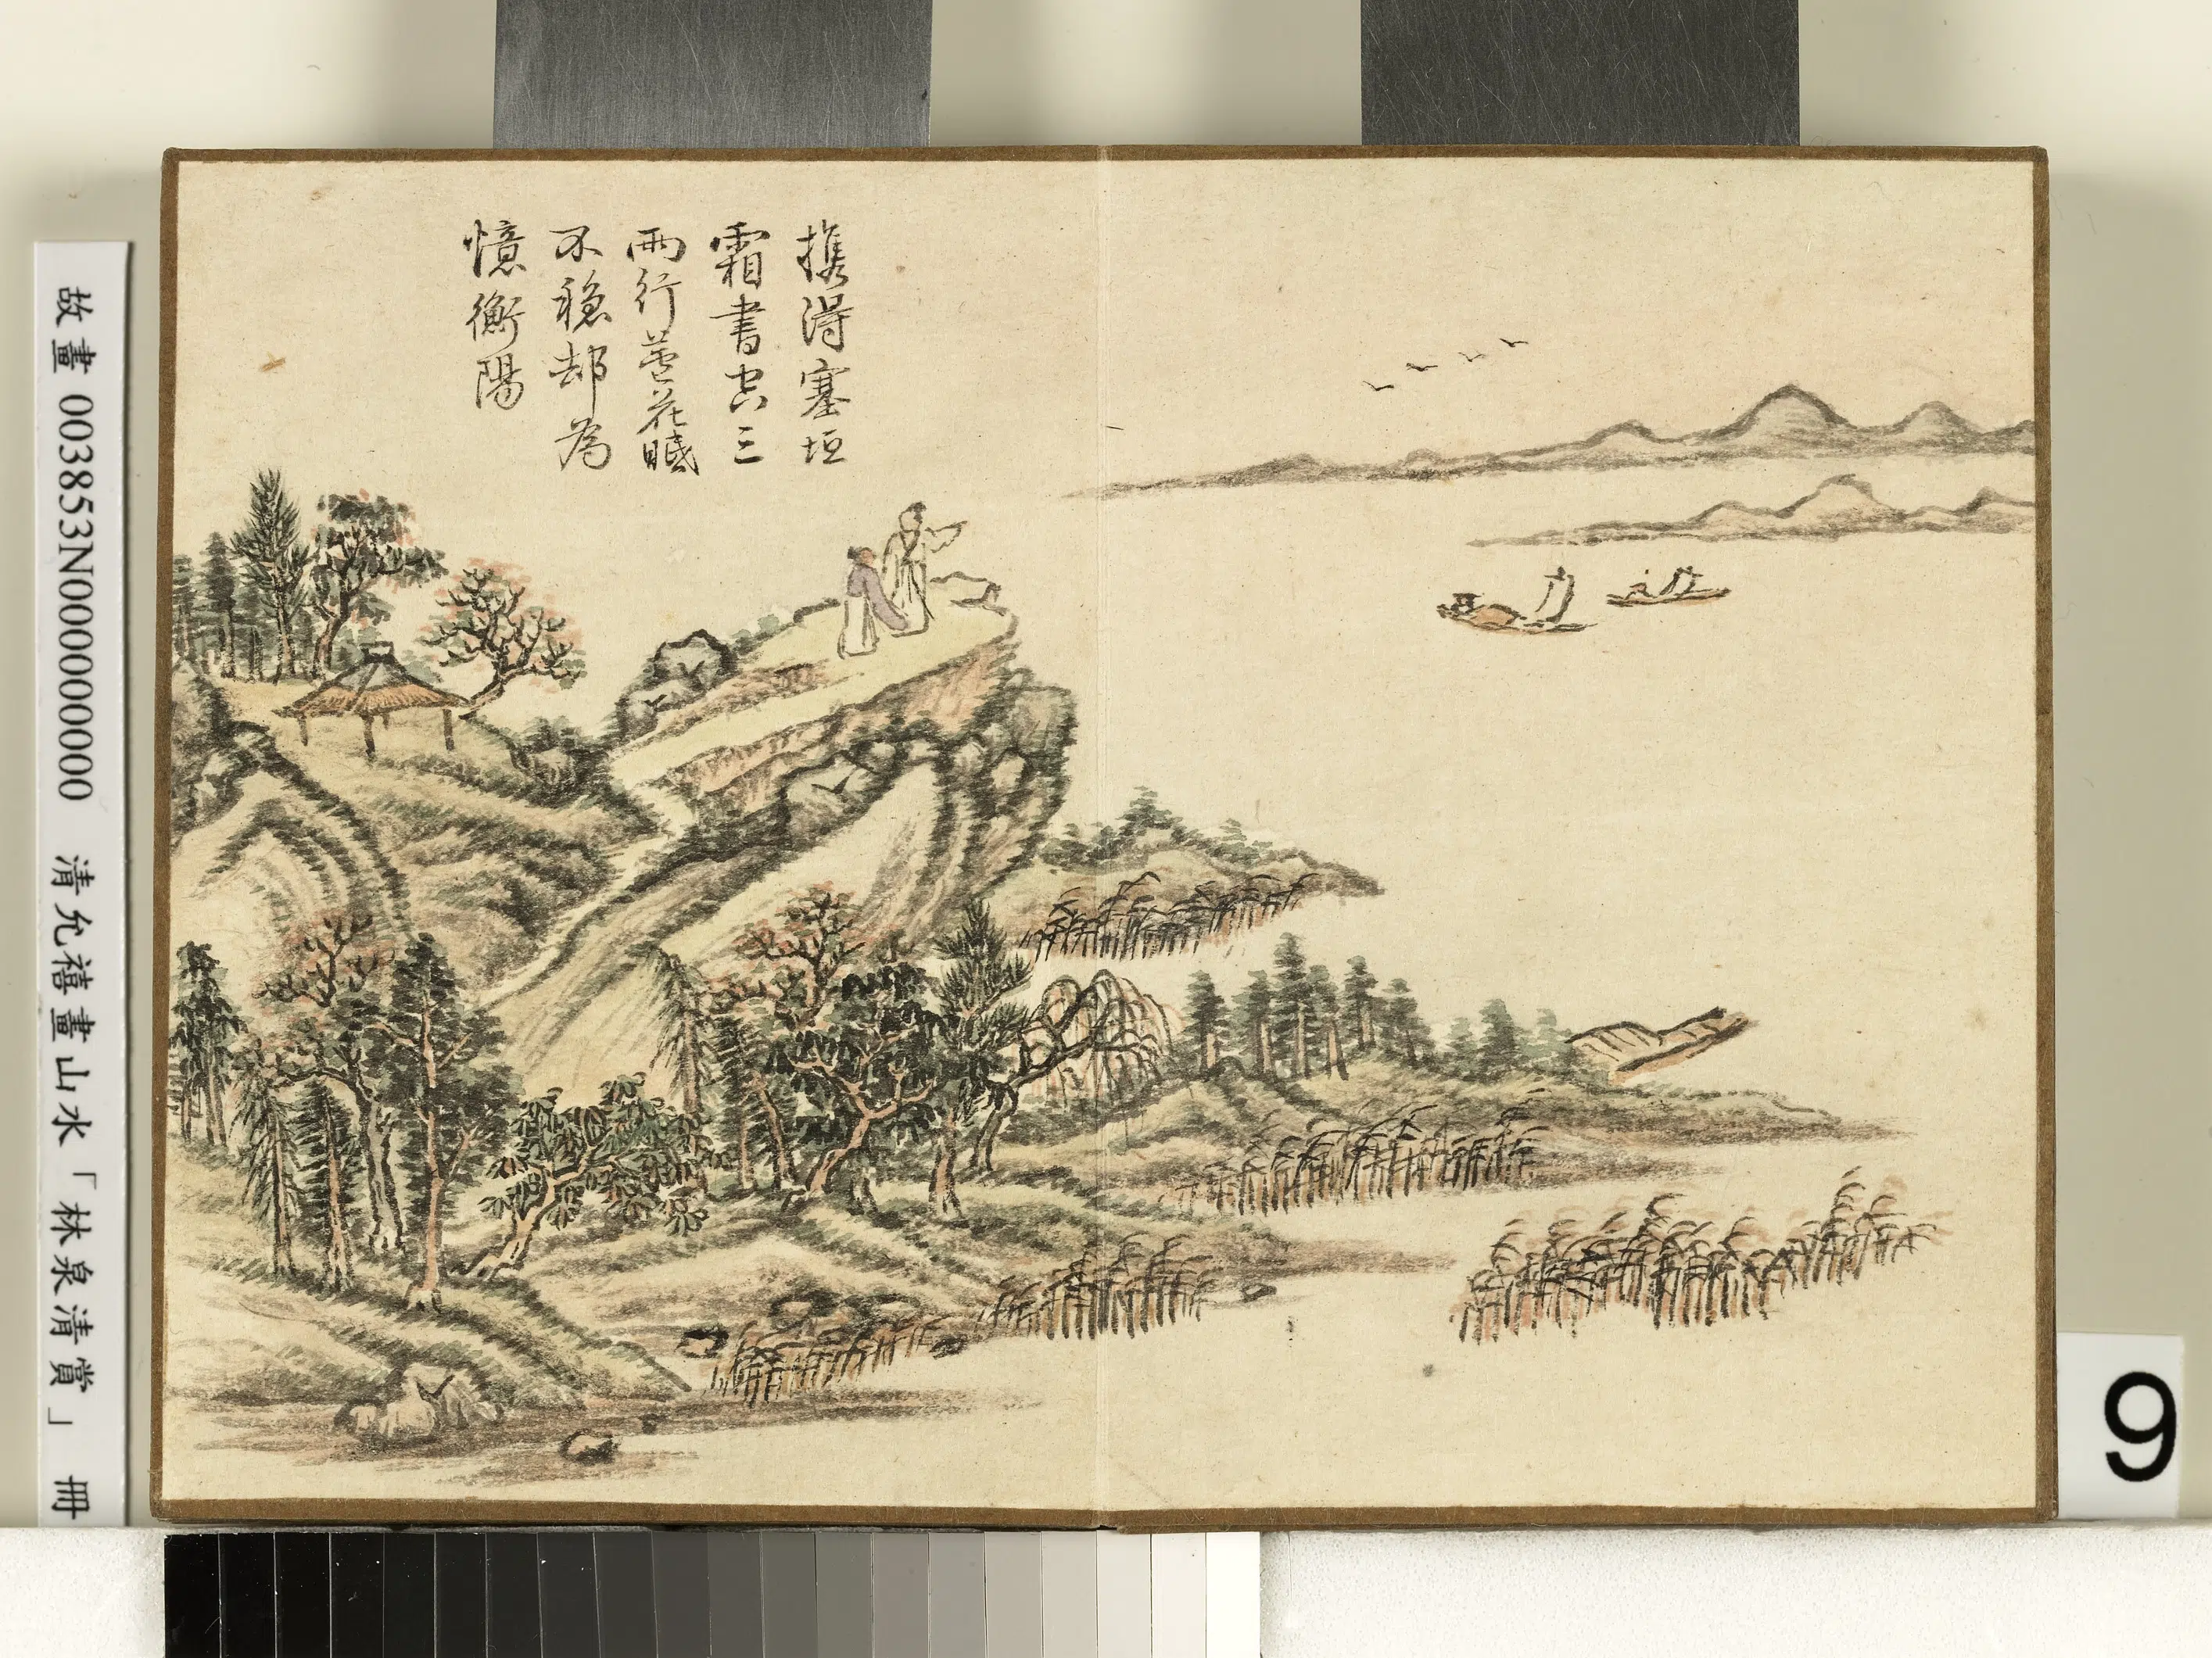 携得塞垣
霜書空三
兩行蘆花眠
不穩却為
憶衡陽
故畫 003853N000000000 清允禧畫山水「林泉清賞」 冊
9